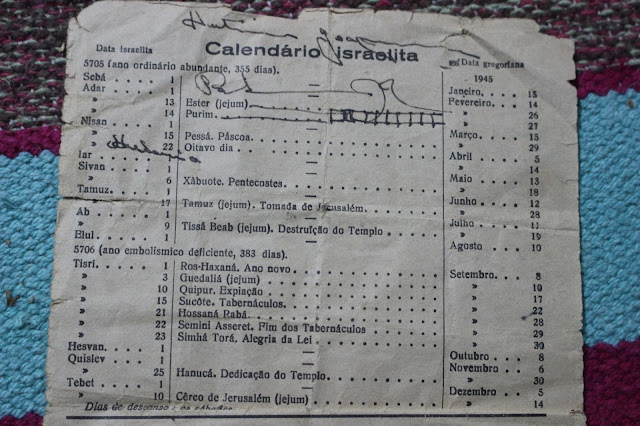 Calendário Israelita
Data israelita
Data gregoriana
5705 (ano ordinário abundante, 355 dias).
1945
Sebá . . . . 1 — Janeiro . . . 15
Adar . . . . 1 — Fevereiro . . . 14
» 13 Ester (jejum) » 26
» 14 Purim » 27
Nisan . . . 1 — Março . . . 15
» 15 Pessá. Páscoa. » 29
» 22 Oitavo dia » Abril . . . 5
Iar . . . . 1 — » 14
Sivan . . . 1 — Maio . . . 13
» 6 Xábuote. Pentecostes. » 18
Tamuz. . . 1 — Junho . . . 12
» 17 Tamuz (jejum). Tomada de Jerusalém. » 28
Ab . . . . 1 — Julho . . . 11
» 9 Tissá Beab (jejum). Destruïção do Templo » 19
Elul . . . . 1 — Agosto . . . 10
5706 (ano embolísmico deficiente, 383 dias).
Tisri. . . . 1 Ros-Haxaná. Ano novo Setembro . . 8
» 3 Guedaliá (jejum) » 10
» 10 Quipur. Expiação » 17
» 15 Sucôte. Tabernáculos. » 22
» 21 Hossaná Rabá. » 28
» 22 Semini Asseret. Fim dos Tabernáculos » 29
» 23 Simhá Torá, Alegria da Lei » 30
Hesvan . . 1 — Outubro . . 8
Quislev . . 1 — Novembro . . 6
» 25 Hanucá. Dedicação do Templo. » 30
Tebet . . . 1 — Dezembro . . 5
» 10 Cêrco de Jerusalém (jejum) » 14
Dias de descanso: os sábados